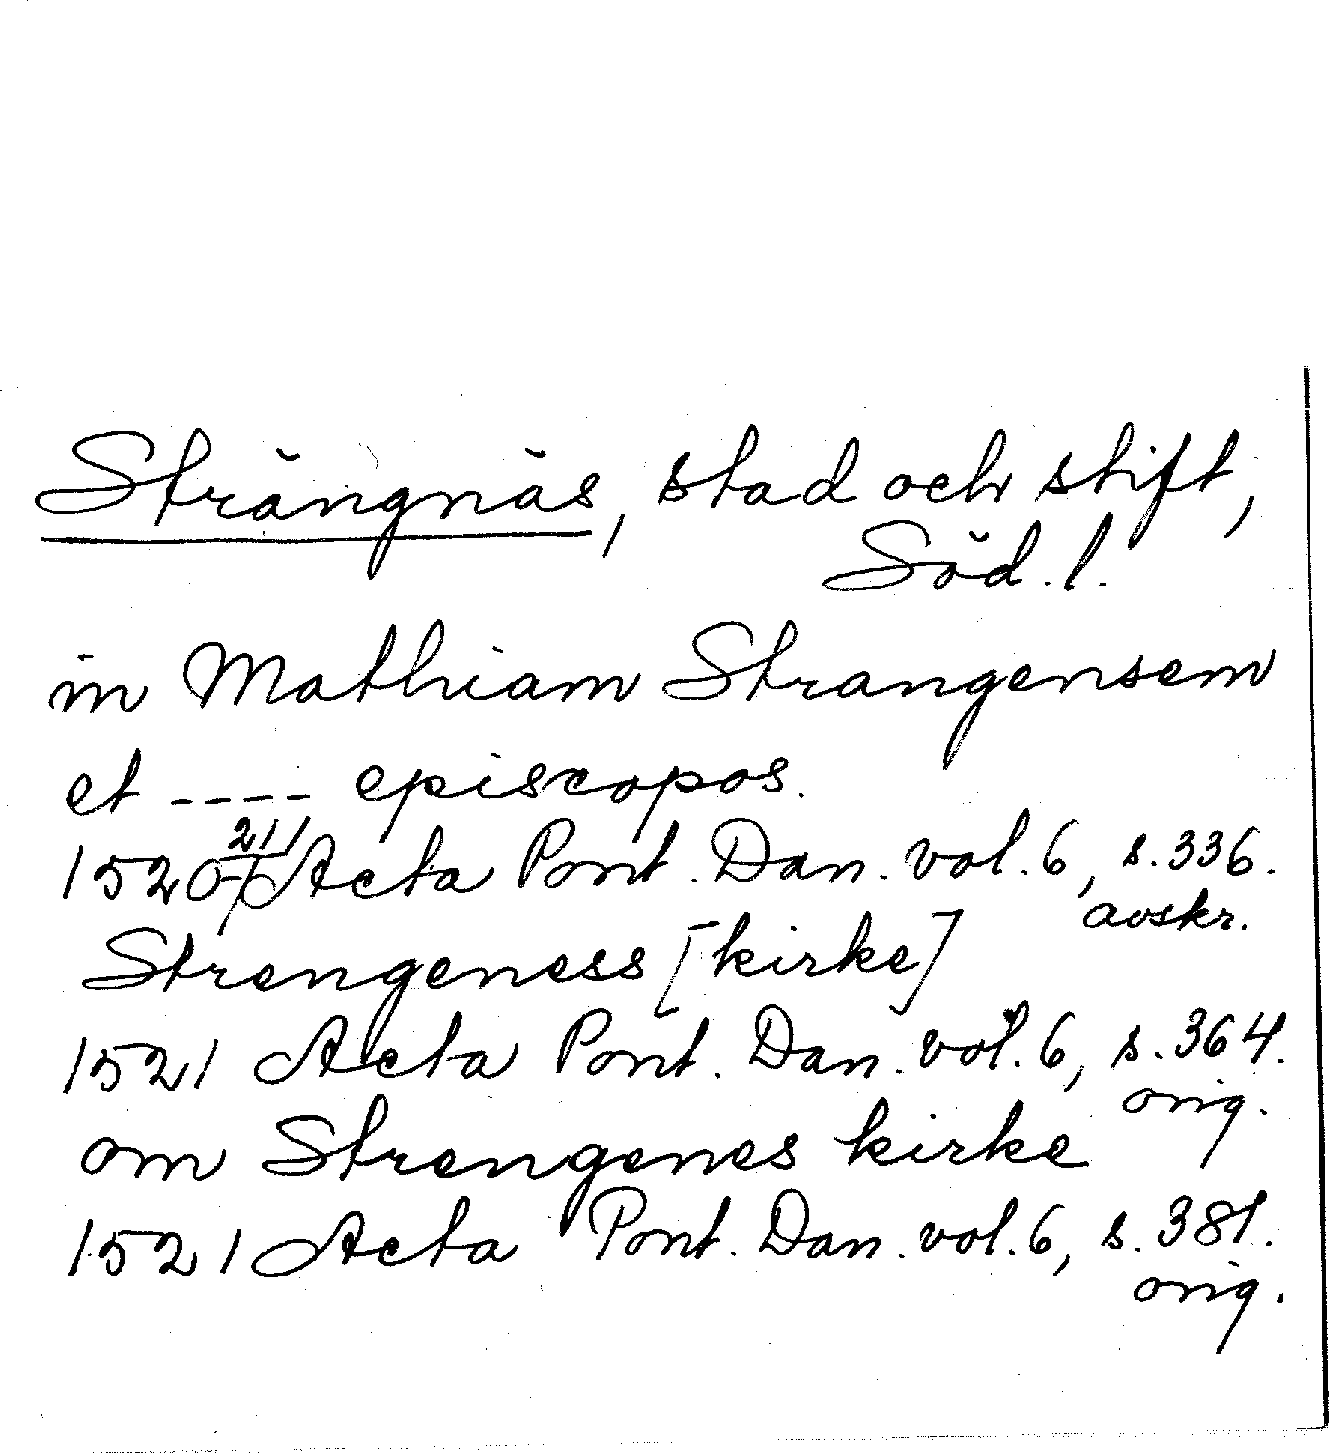 Strängnäs, stad och stift,
Söd. l.
in Mathiam Strangensem
et ---- episcopos.
1520 21/7 Acta Pont. Dan. vol. 6, s. 336.
avskr.
Strengeness [kirke]
1521 Acta Pont. Dan. vol. 6, s. 364.
orig.
om Strengenes kirke
1521 Acta Pont. Dan. vol. 6, s. 381.
orig.